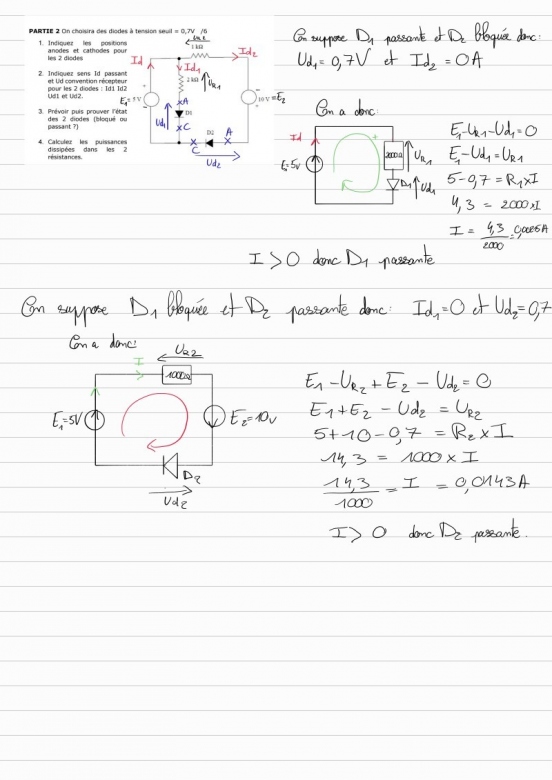 PARTIE 2 On choisira des diodes à tension seuil = 0,7V /6
1. Indiquez les positions anodes et cathodes pour les 2 diodes
2. Indiquez sens Id passant et Ud convention récepteur pour les 2 diodes : Id1 Id2 Ud1 et Ud2.
3. Prévoir puis prouver l'état des 2 diodes (bloqué ou passant ?)
4. Calculez les puissances dissipées dans les 2 résistances.
UR2
1 kΩ
Id
Id2
Id1
2 kΩ
UR1
E1= 5 V
10 V =E2
A
D1
Ud1
C
D2
A
C
Ud2
On suppose D1 passante et D2 bloquée donc:
Ud1 = 0,7V et Id2 = 0A
On a donc:
Id
E=5v
2000Ω
UR1
D1
Ud1
E1-UR1-Ud1=0
E1-Ud1=UR1
5-0,7=R1xI
4,3 = 2000xI
I = 4,3/2000=0,0025A
I > 0 donc D1 passante
On suppose D1 bloquée et D2 passante donc: Id1=0 et Ud2=0,7
On a donc:
UR2
I
1000Ω
E1=5V
E2=10v
D2
Ud2
E1-UR2+E2-Ud2=0
E1+E2-Ud2=UR2
5+10-0,7=R2xI
14,3 = 1000xI
14,3/1000 = I = 0,0143A
I> 0 donc D2 passante.